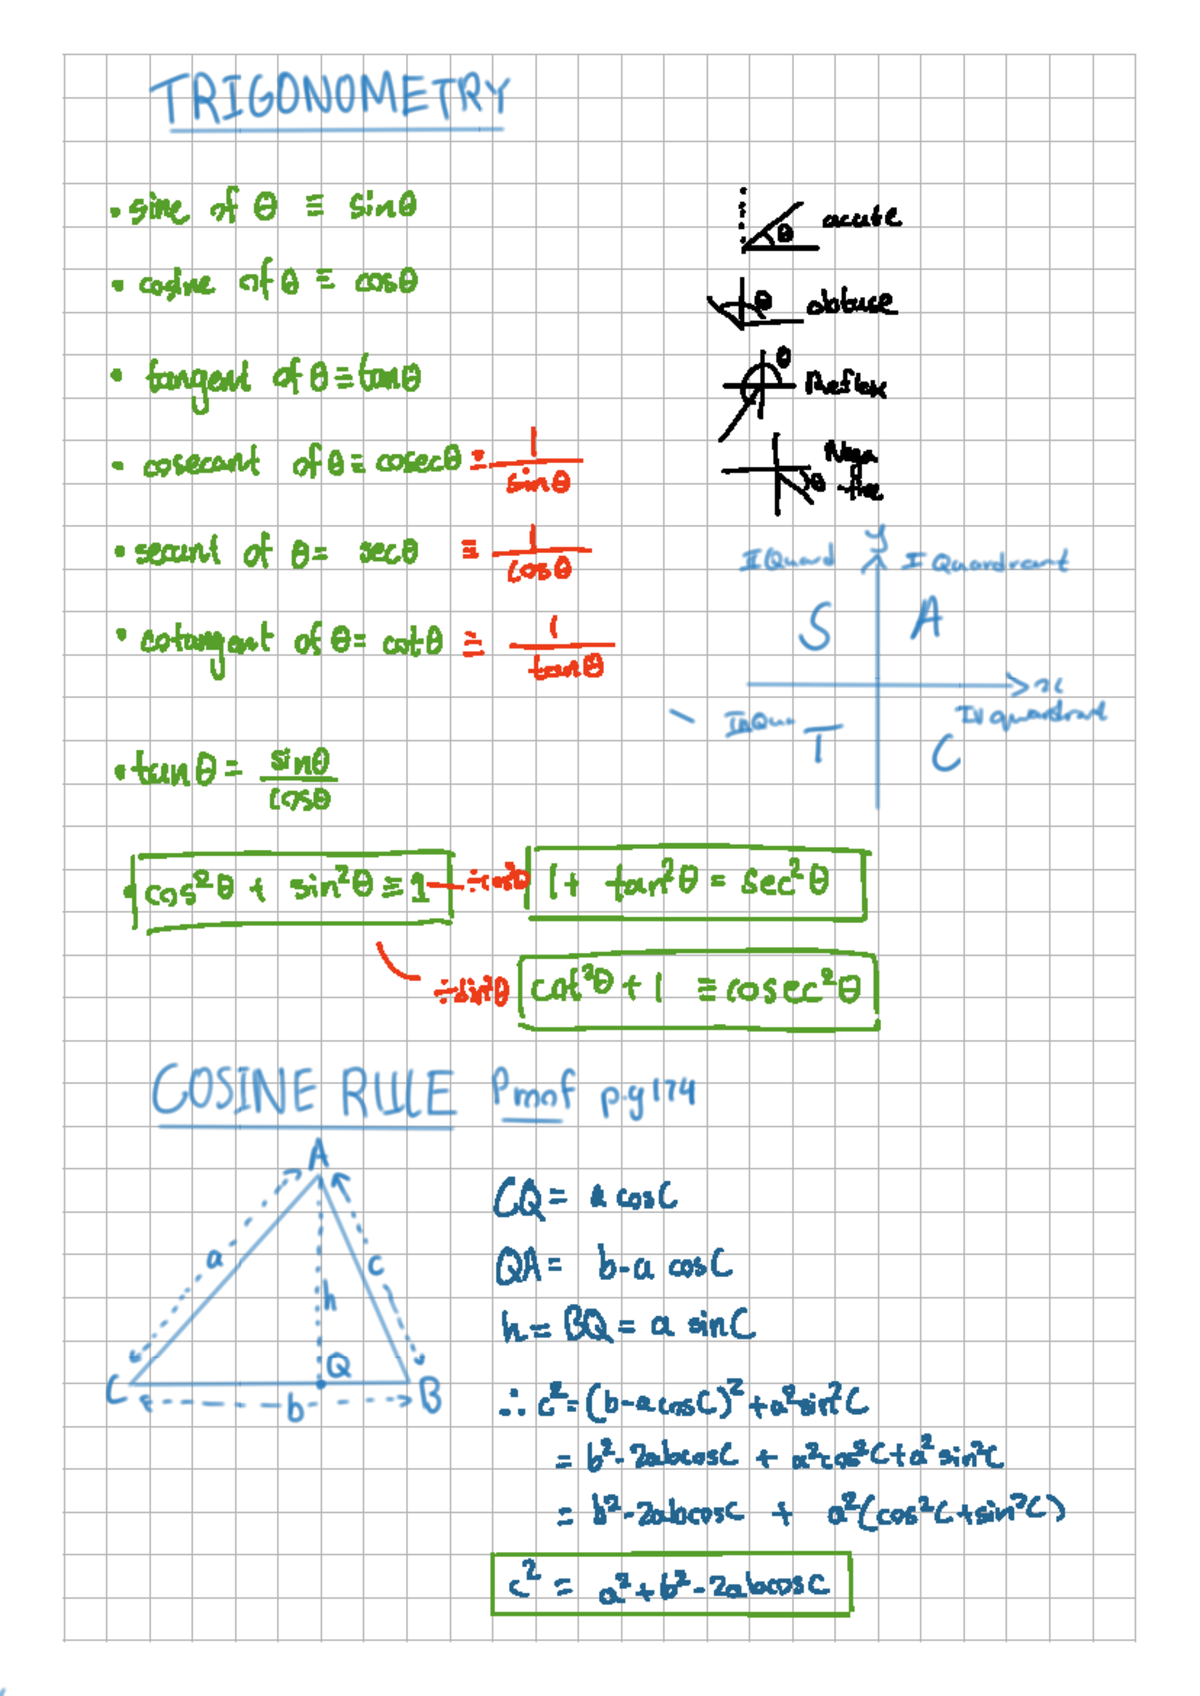 TRIGONOMETRY
• sine of θ ≡ sinθ
• cosine of θ ≡ cosθ
• tangent of θ ≡ tanθ
• cosecant of θ ≡ cosecθ ≡ 1/sinθ
• secant of θ = secθ ≡ 1/cosθ
• cotangent of θ = cotθ ≡ 1/tanθ
• tanθ = sinθ/cosθ
θ acute
θ obtuse
θ Reflex
θ Nega
tive
II Quad y I Quardreant
S A
x
III Qua IV quardrant
T C
• cos²θ + sin²θ ≡ 1 ÷cos²θ 1 + tan²θ = sec²θ
÷sin²θ cot²θ + 1 ≡ cosec²θ
COSINE RULE Proof p.g 174
A
a c
h
C Q B
b
CQ = a cosC
QA = b-a cosC
h = BQ = a sinC
∴ c² = (b-a cosC)² + a²sin²C
= b² - 2abcosC + a²cos²C + a²sin²C
= b² - 2abcosC + a²(cos²C + sin²C)
c² = a² + b² - 2abcosC